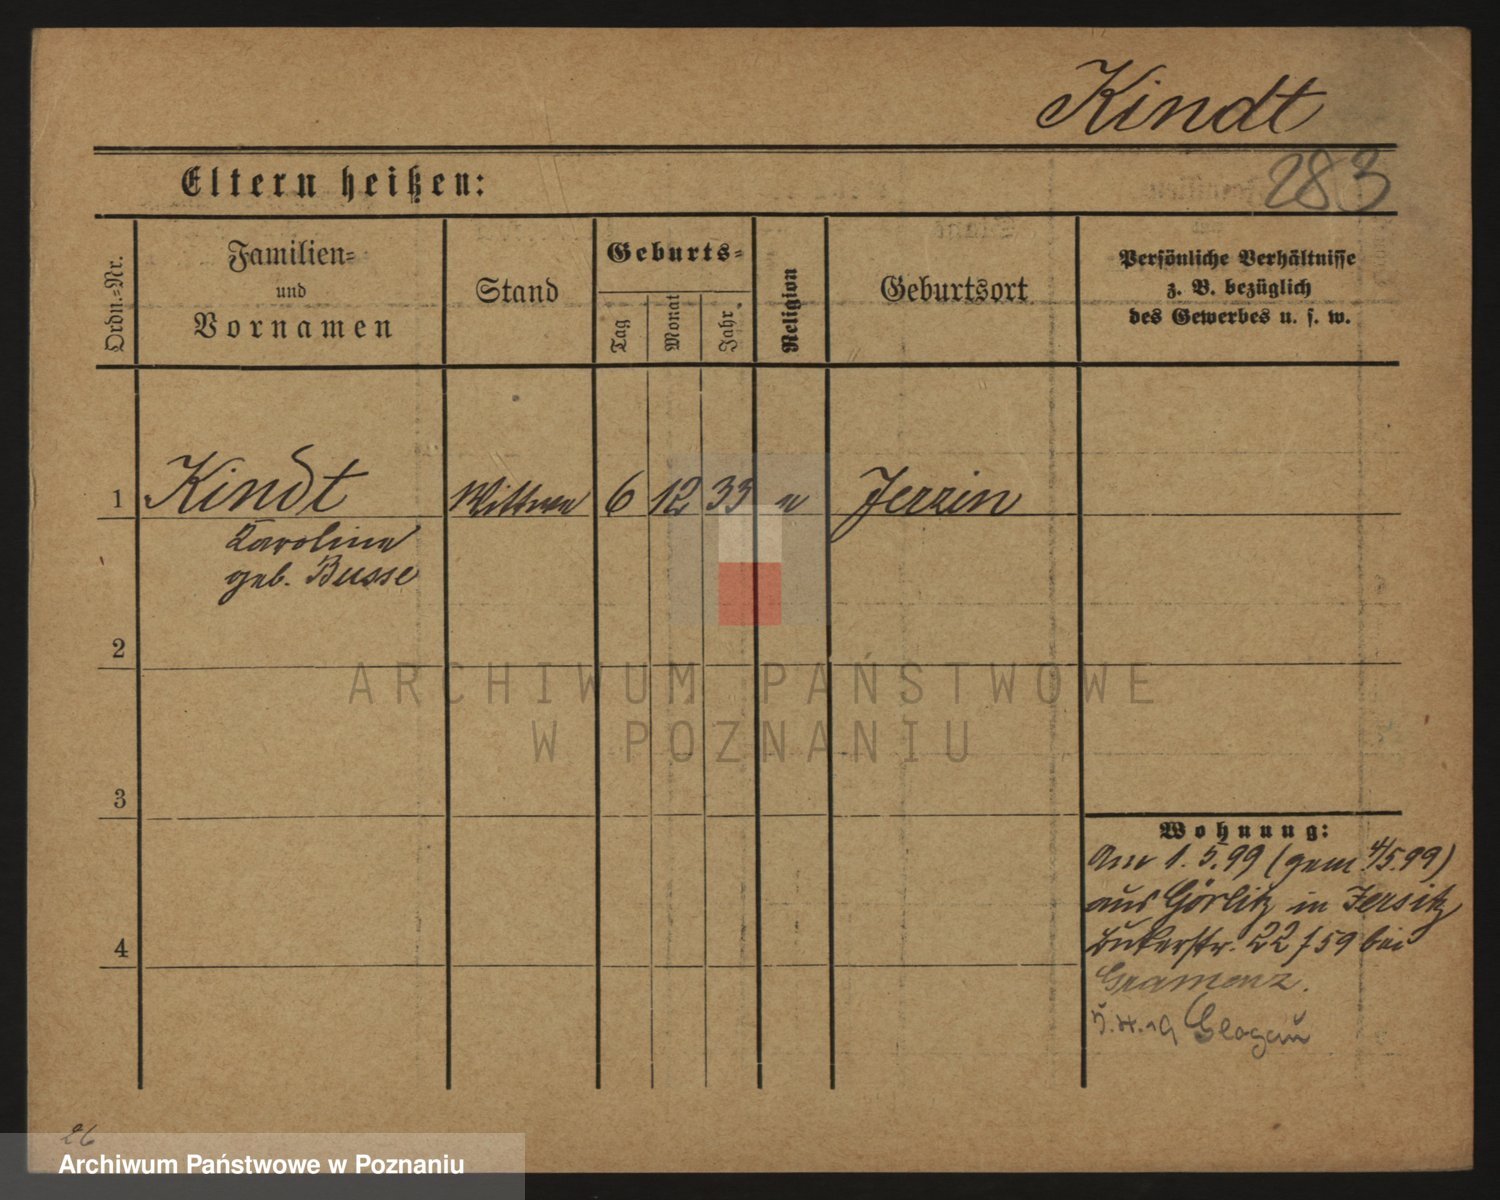 Kindt
283
Eltern heißen:
Ordn.-Nr.
Familien-
und
Vornamen
Stand
Geburts-
Tag
Monat
Jahr
Religion
Geburtsort
Persönliche Verhältnisse
z. B. bezüglich
des Gewerbes u. s. w.
1 Kindt Wittwe 6 12 33 Jerzin
Karoline
geb. Busse
2
3
4
Wohnung:
Am 1.5.99 (gem. 4/5.99)
aus Görlitz in Jersitz
Bukerstr. 22/59 bei
Gramenz.
Glogau
26
ARCHIWUM PAŃSTWOWE
W POZNANIU
Archiwum Państwowe w Poznaniu